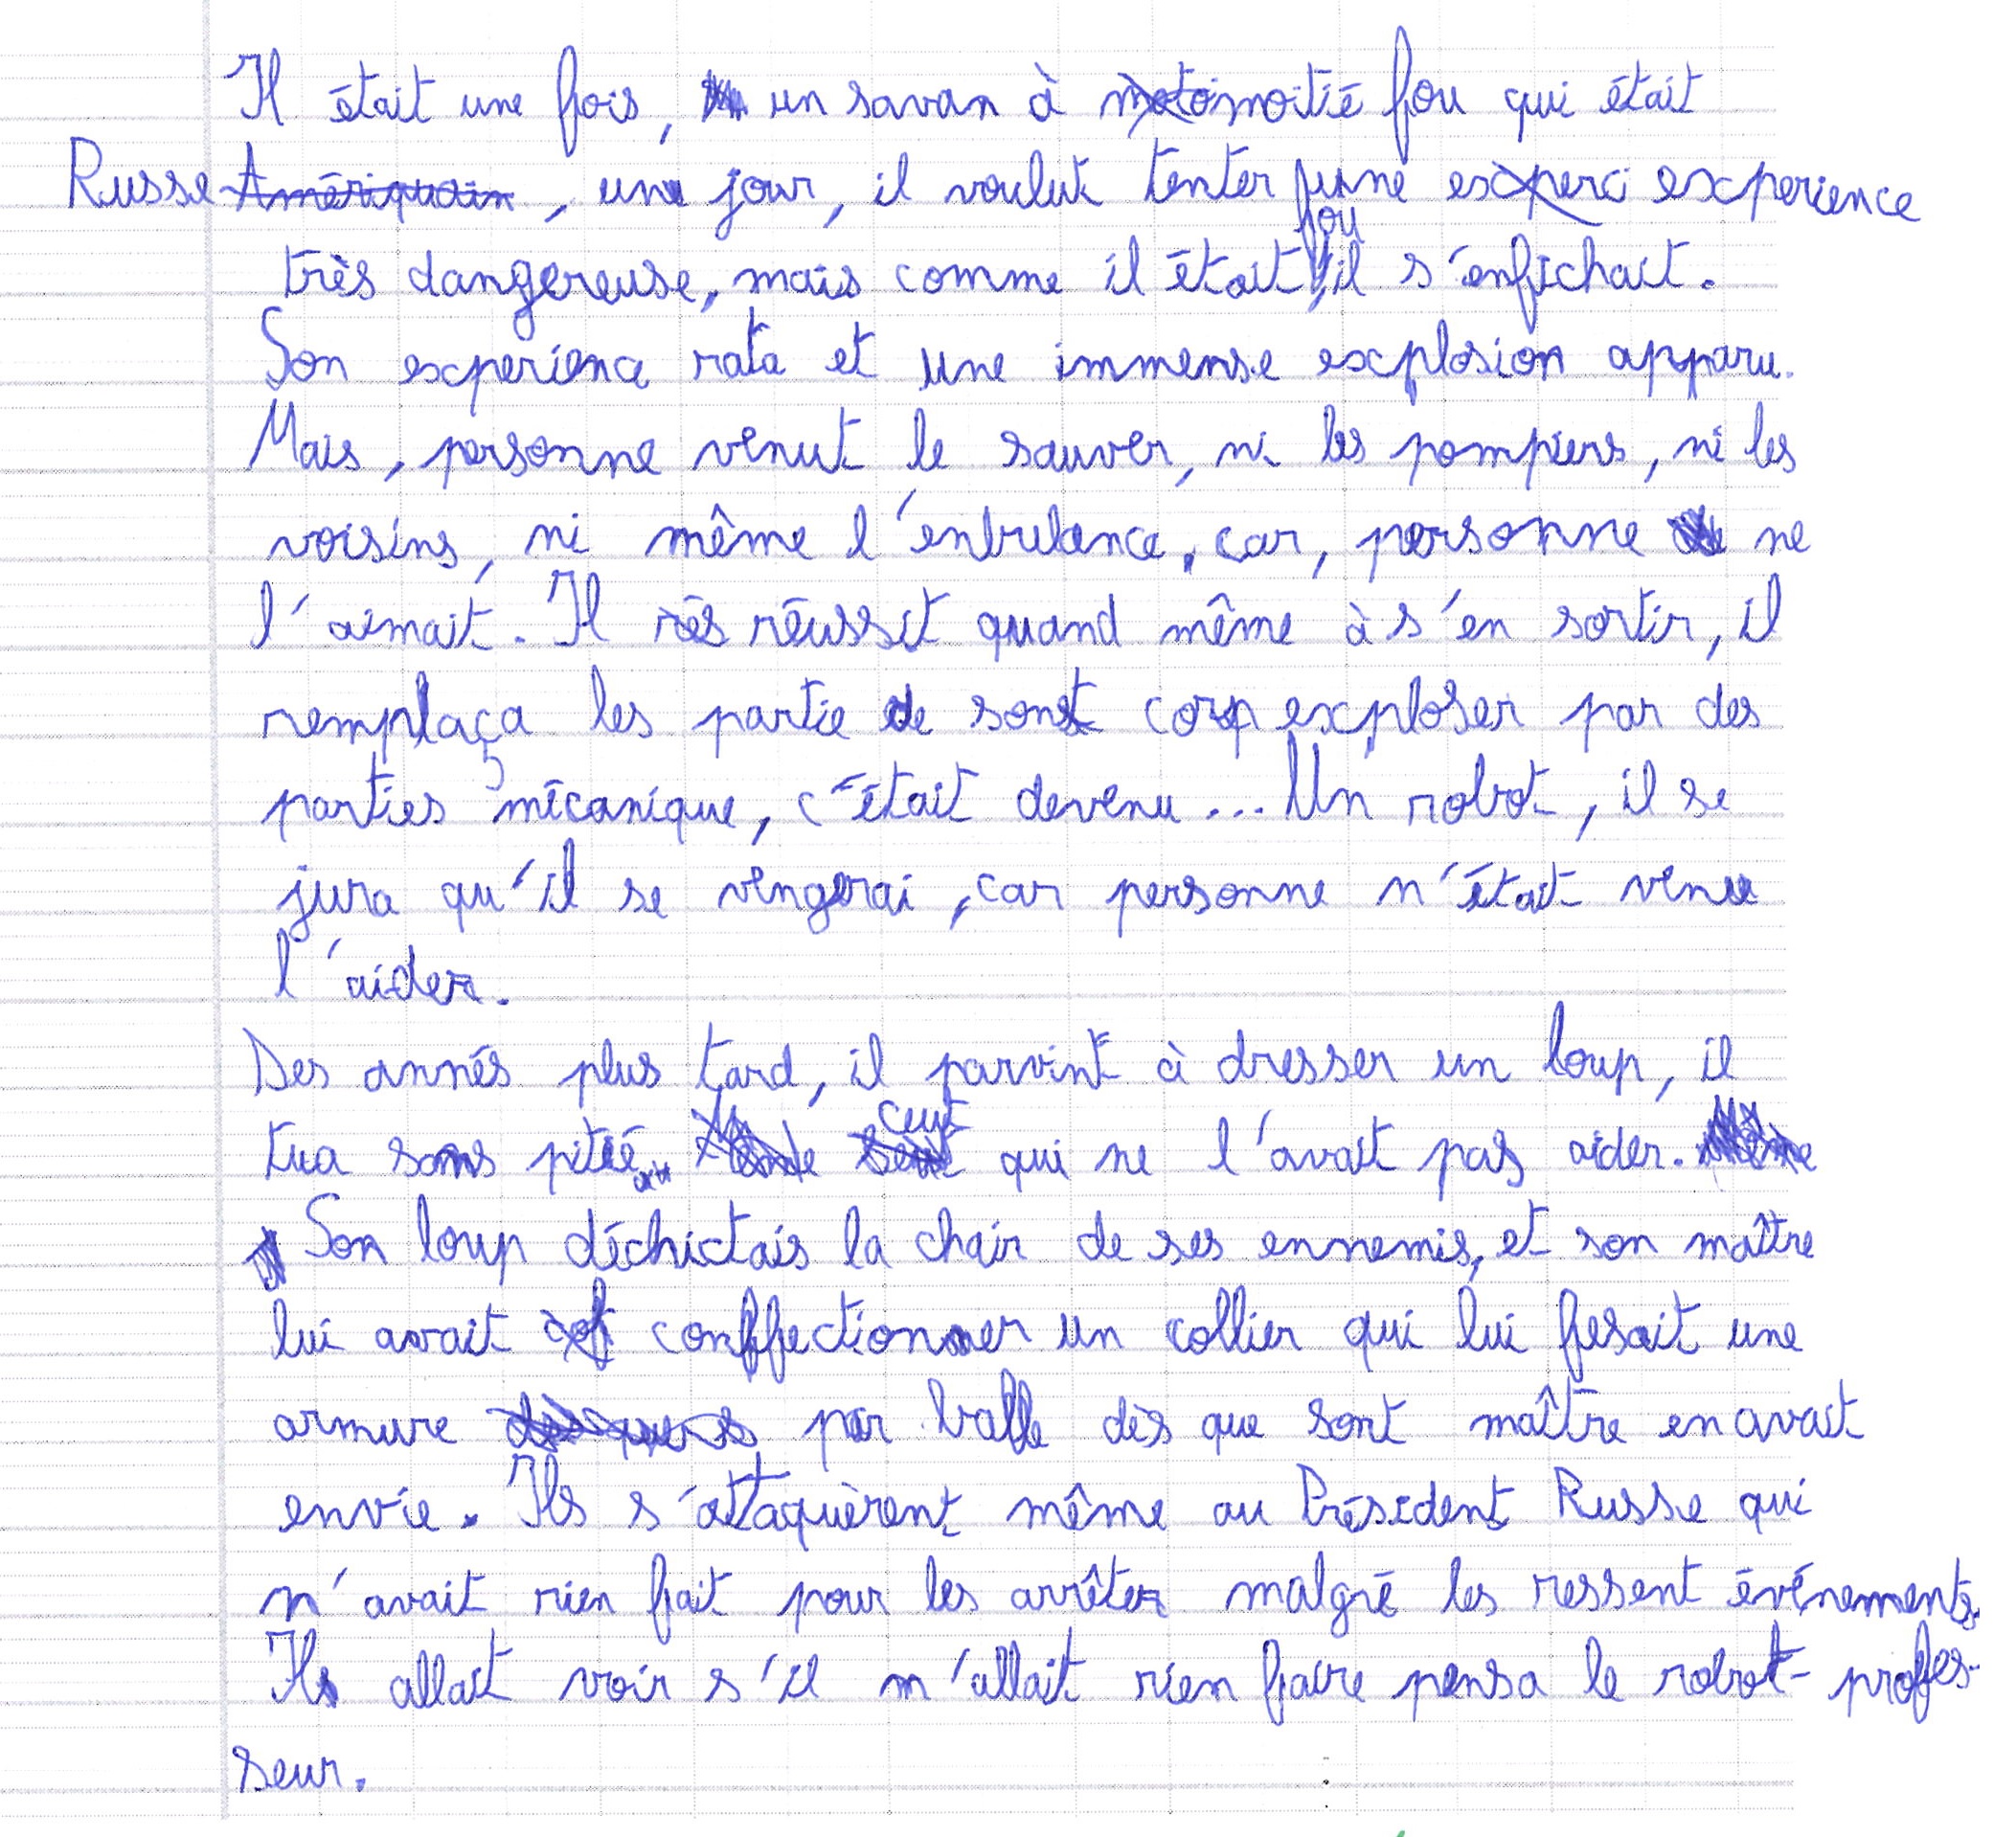 Il était une fois, un savan à moitié fou qui était
Russe Amériquain, un jour, il voulut tenter une experience
très dangereuse, mais comme il était fou, il s'enfichait.
Son experience rata et une immense explosion apparu.
Mais, personne venut le sauver, ni les pompiers, ni les
voisins, ni même l'enbulance, car, personne ne
l'aimait. Il rés réussit quand même à s'en sortir, il
remplaça les partie de sont corp exploser par des
parties mécanique, c'était devenu... Un robot, il se
jura qu'il se vengerai, car personne n'était venu
l'aider.
Des annés plus tard, il parvint à dresser un loup, il
tua sans pitié ceux qui ne l'avait pas aider.
Son loup déchictais la chair de ses ennemis, et son maître
lui avait conffectionner un collier qui lui fesait une
armure par balle dès que sont maître en avait
envie. Ils s'attaquèrent même au Président Russe qui
n'avait rien fait pour les arrêter malgré les ressent événements.
Ils allait voir s'il m'allait rien faire pensa le robot-profes-
seur.